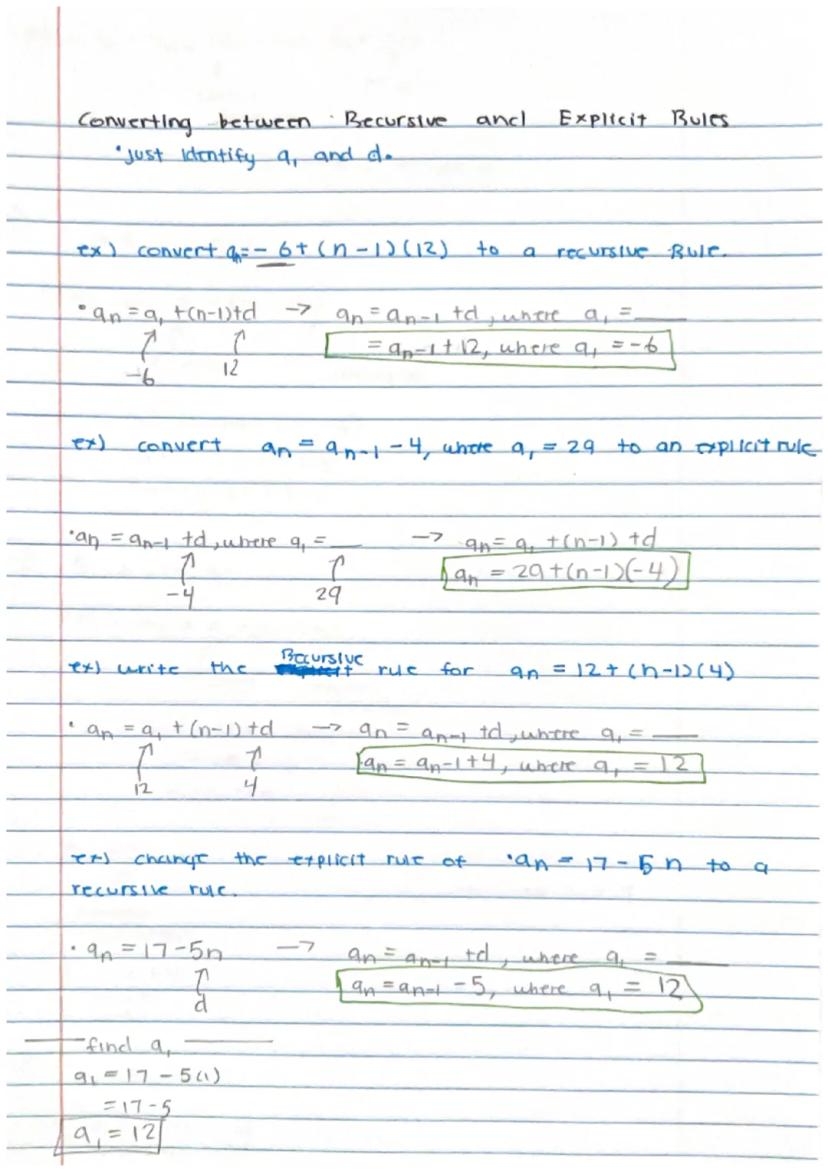 Converting between Recursive and Explicit Rules
•just identify a₁ and d.
ex) convert aₙ=-6+(n-1)(12) to a recursive Rule.
• aₙ = a₁ +(n-1)+d -> aₙ = aₙ₋₁ +d, where a₁ = ____
-6 12 = aₙ₋₁ + 12, where a₁ = -6
ex) convert aₙ = aₙ₋₁ - 4, where a₁ = 29 to an explicit rule
•aₙ = aₙ₋₁ +d, where a₁ = __ -> aₙ = a₁ +(n-1)+d
-4 29 aₙ = 29+(n-1)(-4)
ex) write the Recursive rule for aₙ = 12+(n-1)(4)
• aₙ = a₁ + (n-1)+d -> aₙ = aₙ₋₁ +d, where a₁ = ____
12 4 aₙ = aₙ₋₁+4, where a₁ = 12
ex) change the explicit rule of •aₙ = 17-5n to a
recursive rule.
• aₙ = 17-5n -> aₙ = aₙ₋₁ +d, where a₁ = ____
d aₙ = aₙ₋₁ -5, where a₁ = 12
find a₁
a₁ = 17 - 5(1)
= 17-5
a₁ = 12